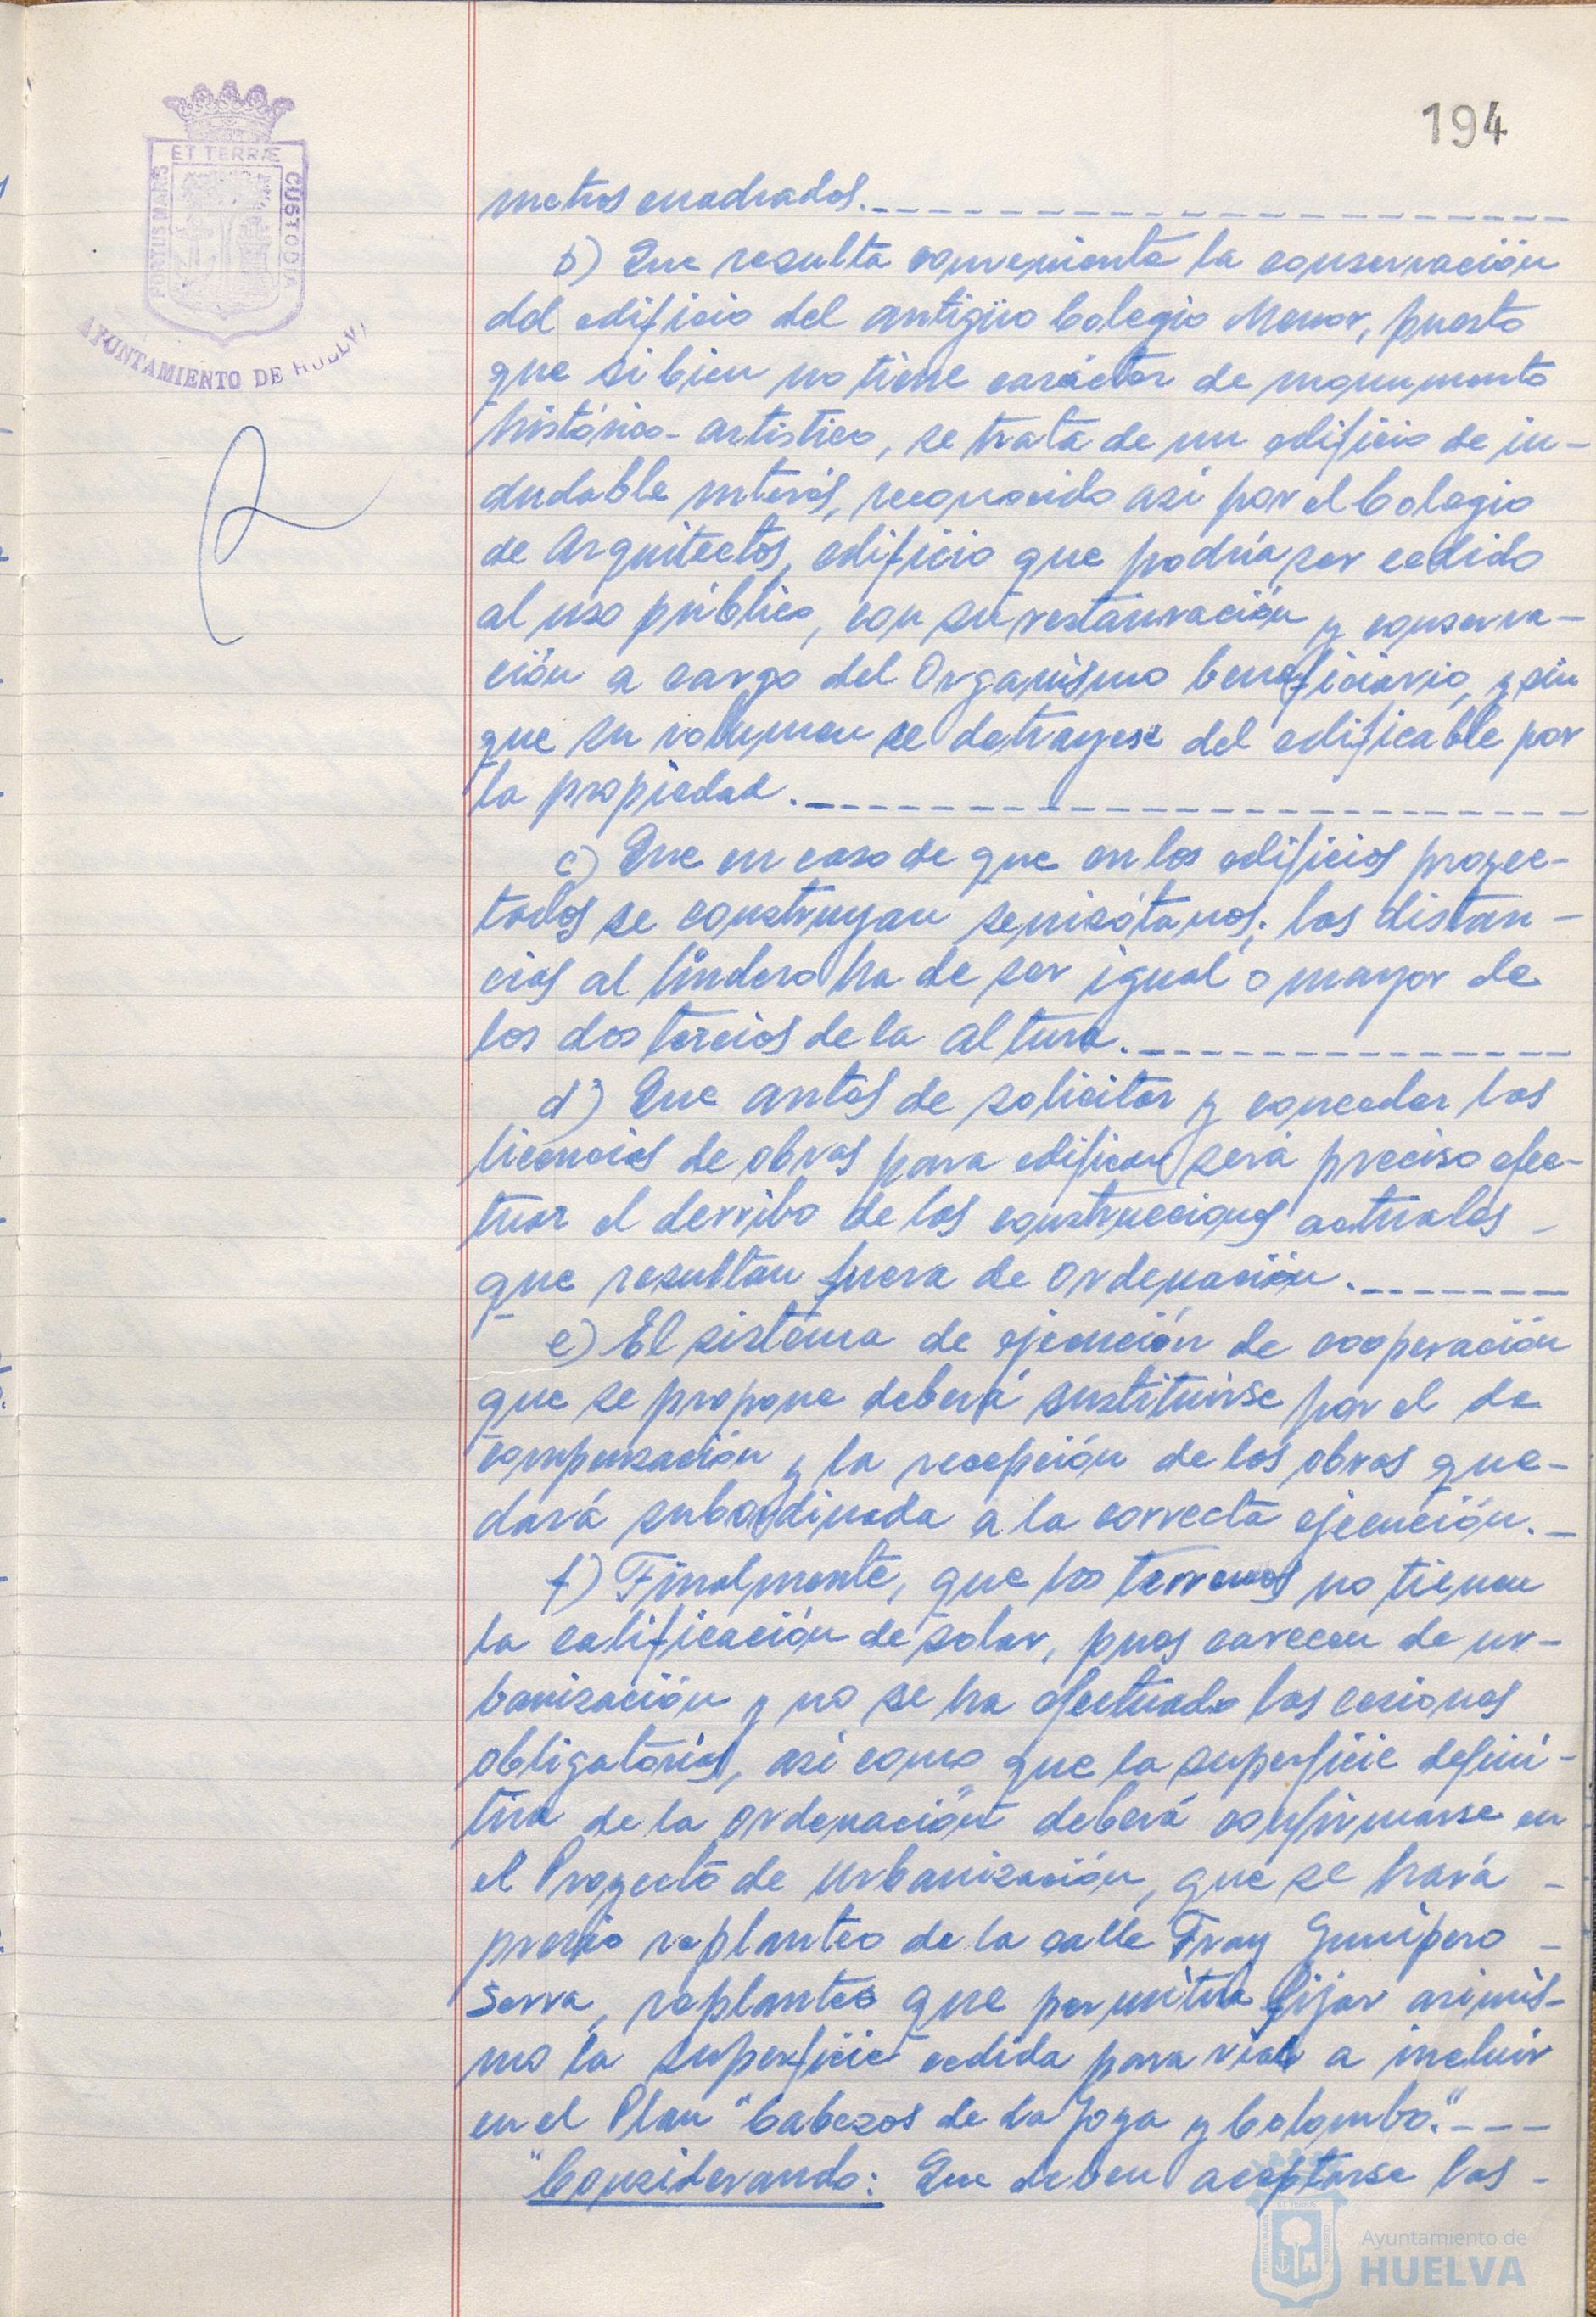 194
ET TERRÆ
PORTUS MARIS
CUSTODIA
AYUNTAMIENTO DE HUELVA
metros cuadrados.
b) Que resulta conveniente la conservación
del edificio del antigüo Colegio Menor, puesto
que si bien no tiene carácter de monumento
histórico-artístico, se trata de un edificio de in-
dudable interés, reconocido así por el Colegio
de Arquitectos, edificio que podría ser cedido
al uso público, con su restauración y conserva-
ción a cargo del Organismo beneficiario, y sin
que su volumen se detrayese del edificable por
la propiedad.
c) Que en caso de que en los edificios proyec-
tados se construyan semisótanos, las distan-
cias al lindero ha de ser igual o mayor de
los dos tercios de la altura.
d) Que antes de solicitar y conceder las
licencias de obras para edificar será preciso efec-
tuar el derribo de las construcciones actuales -
que resultan fuera de ordenación.
e) El sistema de ejecución de cooperación
que se propone deberá sustituirse por el de
compensación y la recepción de las obras que-
dará subordinada a la correcta ejecución.
f) Finalmente, que los terrenos no tienen
la calificación de solar, pues carecen de ur-
banización y no se ha efectuado las cesiones
obligatorias, asi como que la superficie defini-
tiva de la ordenación deberá confirmarse en
el Proyecto de Urbanización, que se hará -
previo replanteo de la calle Fray Junípero -
Serra, replanteo que permitirá fijar asimis-
mo la superficie cedida para vial a incluir
en el Plan "Cabezos de La Joya y Colombo".
"Considerando: Que deben aceptarse las -
Ayuntamiento de
HUELVA